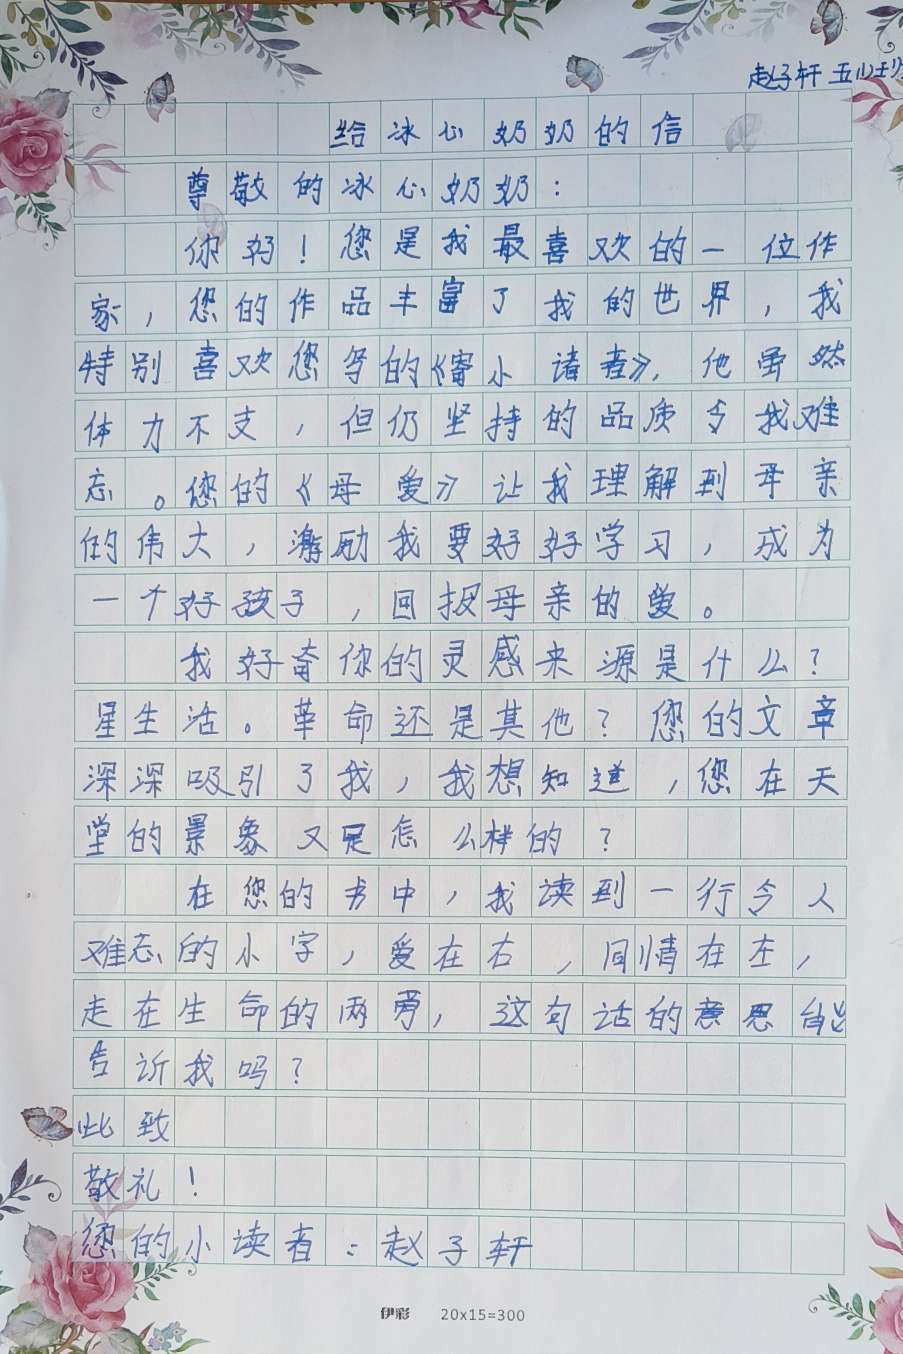 赵子轩 五(1)班
给冰心奶奶的信
尊敬的冰心奶奶：
你好！您是我最喜欢的一位作
家，您的作品丰富了我的世界，我
特别喜欢您写的《寄小诸者》，他虽然
体力不支，但仍坚持的品质令我难
忘。您的《母爱》让我理解到母亲
的伟大，激励我要好好学习，成为
一个好孩子，回报母亲的爱。
我好奇你的灵感来源是什么？
星生活。革命还是其他？您的文章
深深吸引了我，我想知道，您在天
堂的景象又是怎么样的？
在您的书中，我读到一行令人
难忘的小字，爱在右，同情在左，
走在生命的两旁，这句话的意思能
告诉我吗？
此致
敬礼！
您的小读者：赵子轩
伊彩 20x15=300